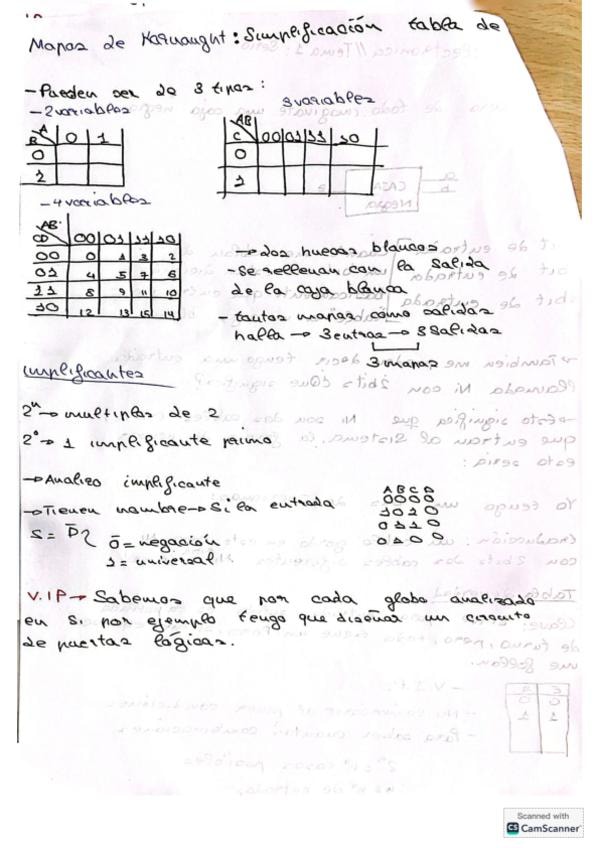 Mapas de Karnaught: Simplificación tabla de
- Pueden ser de 3 tipos:
- 2 variables
3 variables
A
B
0 1
0
1
AB
C
00 01 11 10
0
1
- 4 variables
AB
CD
00 01 11 10
00 0 1 3 2
01 4 5 7 6
11 8 9 11 10
10 12 13 15 14
→ dos huecos blancos
- Se rellenan con la salida
de la caja blanca
- tantos mapas como salidas
halla → 3 entras → 3 Salidas
3 mapas
implificantes
2ⁿ → multiplos de 2
2⁰ → 1 implificante primo
→ Analizo implificante
→ Tienen nombre → Si la entrada
S = D̅
0 = negación
1 = universal
A B C D
0 0 0 0
1 0 1 0
0 1 1 0
0 1 0 0
V.I.P → Sabemos que por cada globo analizado
en S, por ejemplo tengo que diseñar un circuito
de puertas lógicas.
Scanned with
CS CamScanner